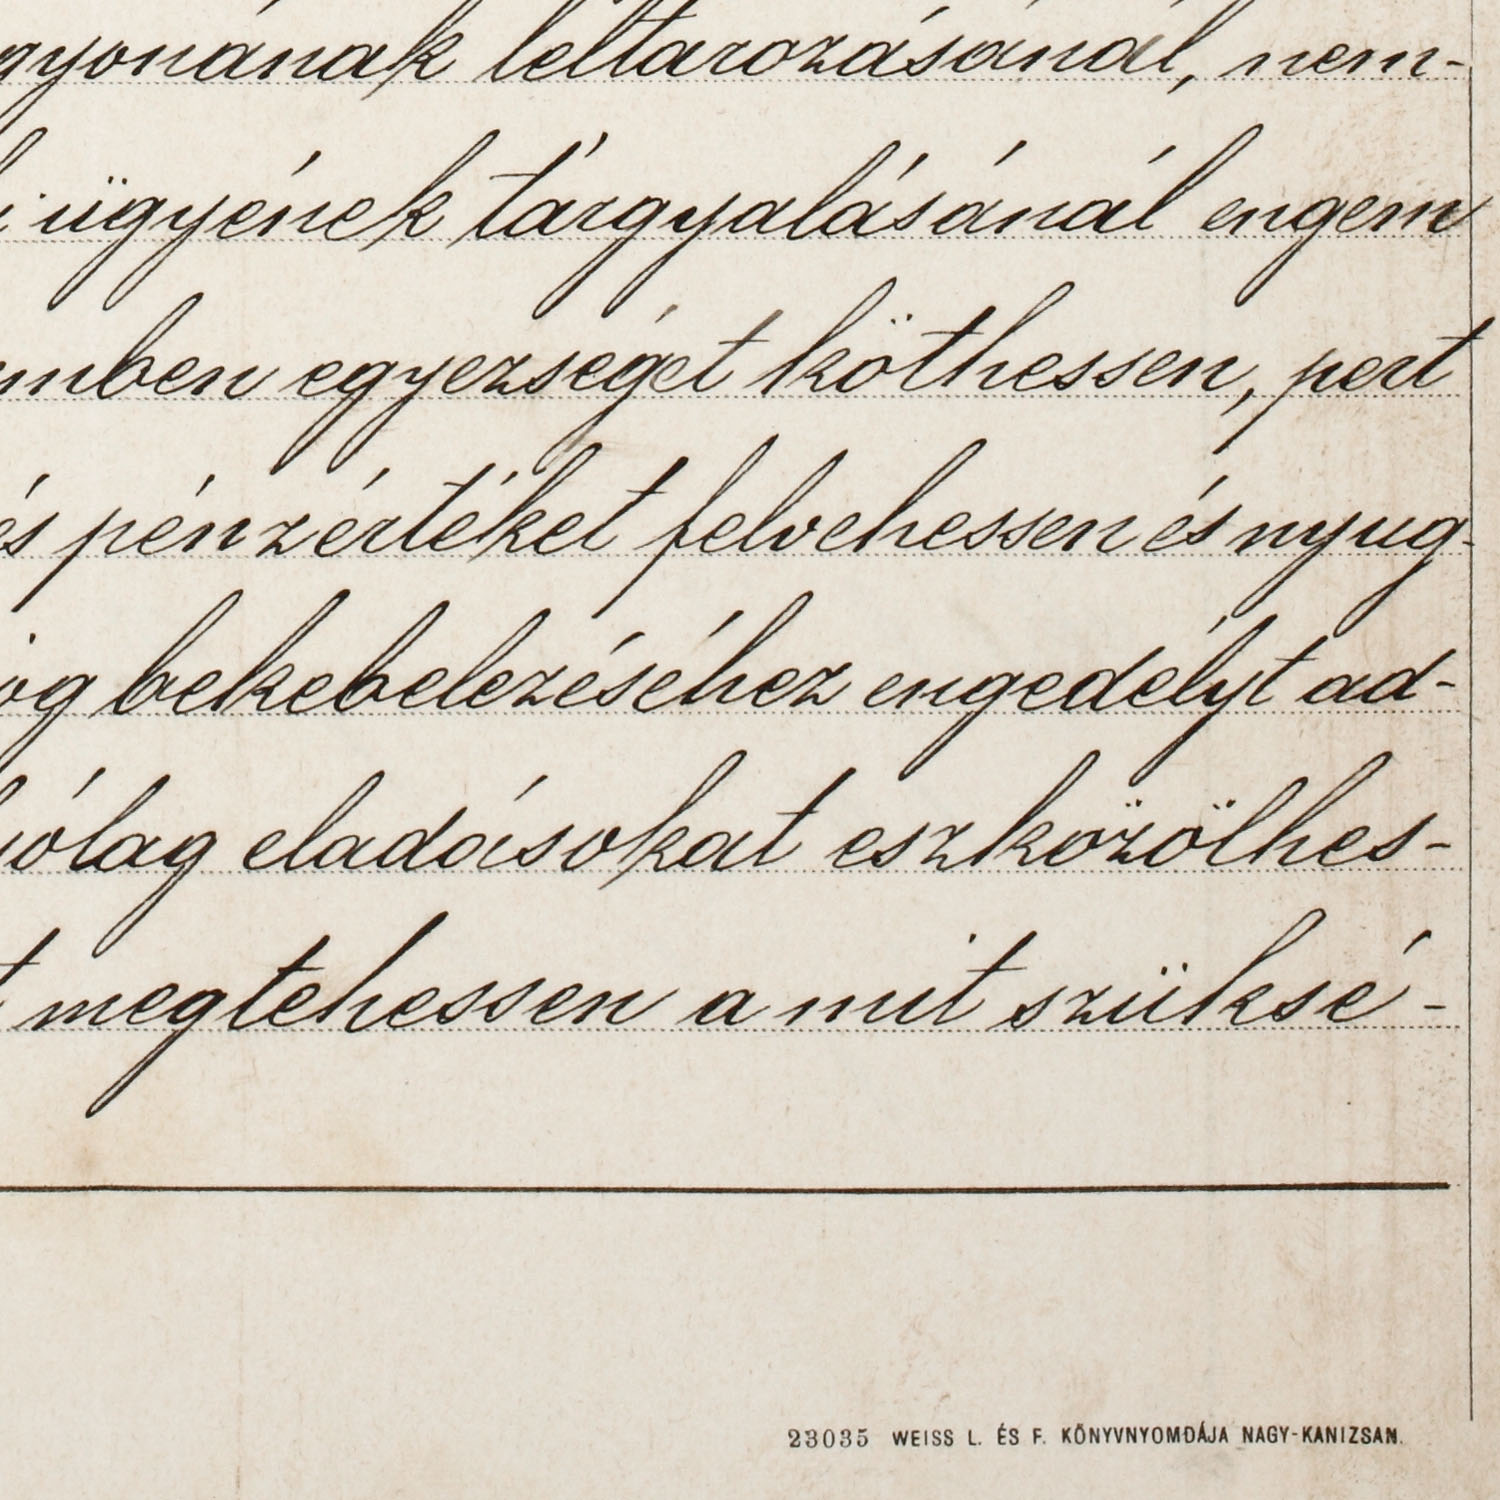 gyonának leltarozásánál, nem-
ügyének tárgyalásánál engem
mben egyezséget köthessen, pert
és pénzértéket felvehessen és nyug-
og bekebelezéséhez engedélyt ad-
ólag eladásokat eszközölhes-
t megtehessen a mit szüksé-
23035 WEISS L. ÉS F. KÖNYVNYOMDÁJA NAGY-KANIZSAN.